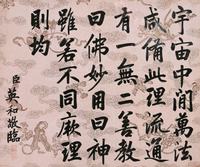 宇宙中閒萬法
咸備此理流通
有一無二善教
曰佛妙用曰神
雖名不同厥理
則均
臣英和敬臨